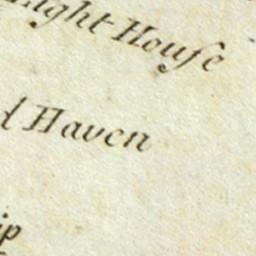 Light Houſe
d Haven
ip